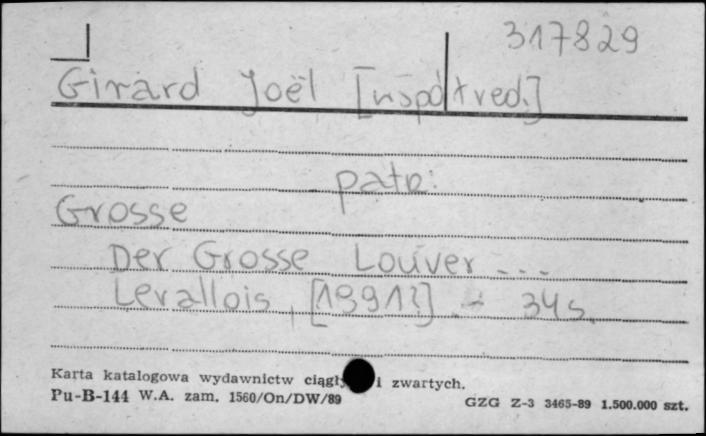 317829
Girard Joël [współred.]
patrz:
Grosse
Der Grosse Louver ...
Levallois, [1991?]. - 34 s.
Karta katalogowa wydawnictw ciągły i zwartych.
Pu-B-144 W.A. zam. 1560/On/DW/89
GZG Z-3 3465-89 1.500.000 szt.